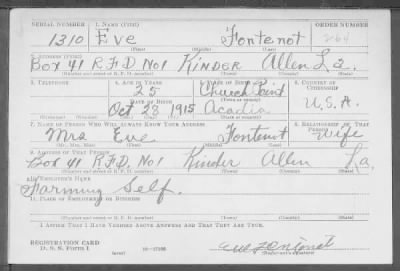 SERIAL NUMBER 1. NAME (Print) ORDER NUMBER
1310 Eve Fontenot 264
(First) (Middle) (Last)
2. ADDRESS (Print)
Box 41 R.F.D. No 1 Kinder Allen La.
(Number and street or R. F. D. number) (Town) (County) (State)
3. TELEPHONE 4. AGE IN YEARS 5. PLACE OF BIRTH 6. COUNTRY OF CITIZENSHIP
25 Church Point
DATE OF BIRTH (Town or county)
Oct 28 1915 Acadia U.S.A.
(Mo.) (Day) (Yr.) (State or country)
7. NAME OF PERSON WHO WILL ALWAYS KNOW YOUR ADDRESS 8. RELATIONSHIP OF THAT PERSON
Mrs Eve Fontenot Wife
(Mr., Mrs., Miss) (First) (Middle) (Last)
9. ADDRESS OF THAT PERSON
Box 41 R.F.D. No 1 Kinder Allen La.
(Number and street or R. F. D. number) (Town) (County) (State)
10. EMPLOYER'S NAME
Farming Self.
11. PLACE OF EMPLOYMENT OR BUSINESS
(Number and street or R. F. D. number) (Town) (County) (State)
I AFFIRM THAT I HAVE VERIFIED ABOVE ANSWERS AND THAT THEY ARE TRUE.
REGISTRATION CARD
D. S. S. FORM 1 (over) 16-17105
(Registrant's signature)